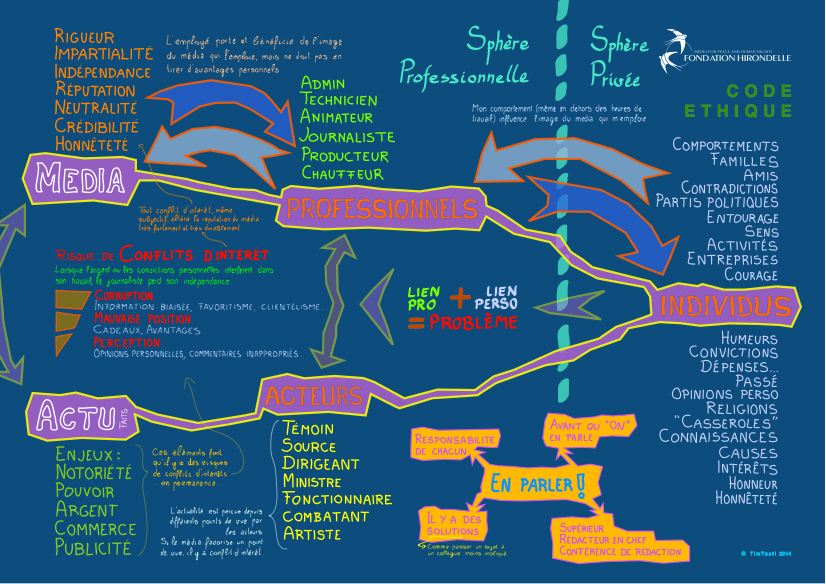 RIGUEUR
IMPARTIALITÉ
INDÉPENDANCE
RÉPUTATION
NEUTRALITÉ
CRÉDIBILITÉ
HONNÊTETÉ
L'employé porte et bénéficie de l'image
du média qui l'emploie, mais ne doit pas en
tirer d'avantages personnels
ADMIN
TECHNICIEN
ANIMATEUR
JOURNALISTE
PRODUCTEUR
CHAUFFEUR
Sphère
Professionnelle
Sphère
Privée
MEDIA FOR PEACE AND HUMAN DIGNITY
FONDATION HIRONDELLE
CODE
ETHIQUE
Mon comportement (même en dehors des heures de
travail) influence l'image du media qui m'emploie
COMPORTEMENTS
FAMILLES
AMIS
CONTRADICTIONS
PARTIS POLITIQUES
ENTOURAGE
SENS
ACTIVITÉS
ENTREPRISES
COURAGE
MEDIA
PROFESSIONNELS
INDIVIDUS
Tout conflit d'intérêt, même
subjectif, altère la réputation du média
très fortement et très durablement
RISQUE DE CONFLITS D'INTÉRÊT
Lorsque l'argent ou les convictions personnelles interfèrent dans
son travail, le journaliste perd son indépendance
CORRUPTION
INFORMATION BIAISÉE, FAVORITISME, CLIENTÉLISME
MAUVAISE POSITION
CADEAUX, AVANTAGES
PERCEPTION
OPINIONS PERSONNELLES, COMMENTAIRES INAPPROPRIÉS...
LIEN
PRO
+
LIEN
PERSO
= PROBLÈME
HUMEURS
CONVICTIONS
DÉPENSES...
PASSÉ
OPINIONS PERSO
RELIGIONS
"CASSEROLES"
CONNAISSANCES
CAUSES
INTÉRÊTS
HONNEUR
HONNÊTETÉ
ACTU
FAITS
ACTEURS
ENJEUX :
NOTORIÉTÉ
POUVOIR
ARGENT
COMMERCE
PUBLICITÉ
Ces éléments font
qu'il y a des risques
de conflits d'intérêts
en permanence
L'actualité est perçue depuis
différents points de vue par
les acteurs
Si le média favorise un point
de vue, il y a conflit d'intérêt.
TÉMOIN
SOURCE
DIRIGEANT
MINISTRE
FONCTIONNAIRE
COMBATANT
ARTISTE
RESPONSABILITÉ
DE CHACUN
AVANT QU "ON"
EN PARLE
EN PARLER !
IL Y A DES
SOLUTIONS
Comme passer un sujet à
un collègue moins impliqué
SUPÉRIEUR
RÉDACTEUR EN CHEF
CONFÉRENCE DE RÉDACTION
© TimToot! 2014